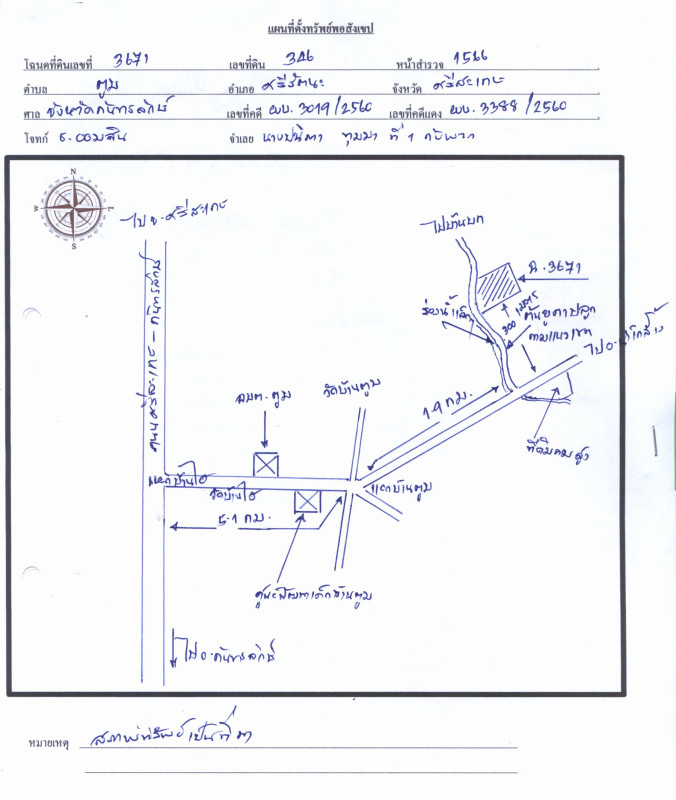 แผนที่ตั้งทรัพย์พอสังเขป
โฉนดที่ดินเลขที่ 3671 เลขที่ดิน 346 หน้าสำรวจ 1566
ตำบล ตูม อำเภอ ศรีรัตนะ จังหวัด ศรีสะเกษ
ศาล จังหวัดกันทรลักษ์ เลขที่คดี ผบ. 3019/2560 เลขที่คดีแดง ผบ. 3388/2560
โจทก์ ธ.ออมสิน จำเลย ที่ 1 กับพวก
N
W
E
S
ไป จ.ศรีสะเกษ
ไปบ้านบก
ฉ.3671
ร่องน้ำเล็ก
300 เมตร
ต้นยูคาปลูก
ตามแนวเขต
ถนนศรีสะเกษ - กันทรลักษ์
1.9 กม.
อบต.ตูม
วัดบ้านตูม
ที่ดินคนสูง
แยกบ้านตูม
5.1 กม.
ศูนย์พัฒนาเด็กบ้านตูม
ไป อ.กันทรลักษ์
หมายเหตุ สภาพทรัพย์เป็นที่นา